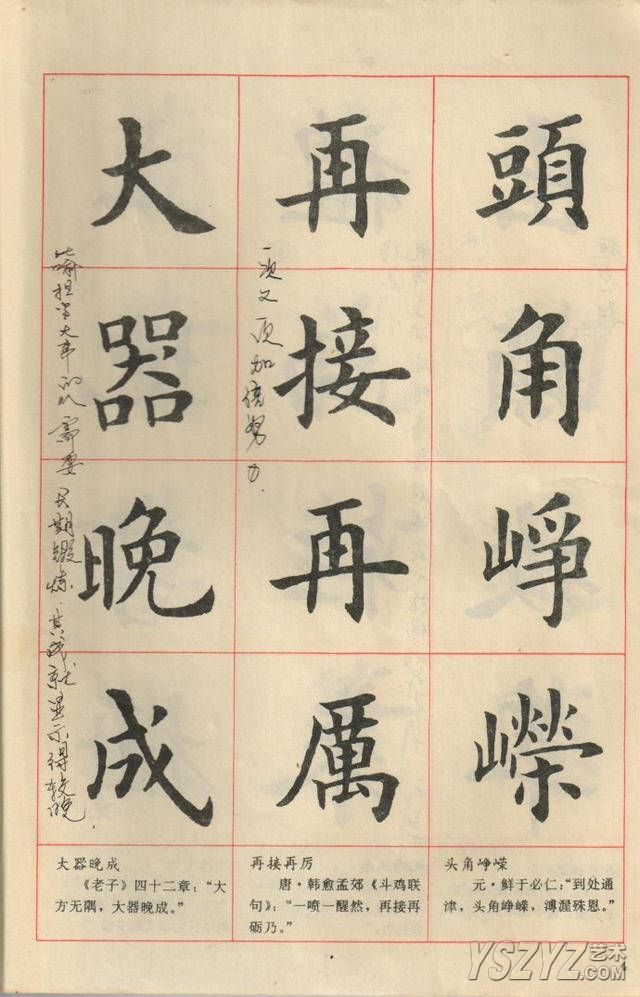 頭角崢嶸
再接再厲
一次又一次加倍努力.
大器晚成
比喻担当大事的人需要长期锻炼.其成就显示得较晚
大器晚成
《老子》四十二章：“大
方无隅，大器晚成。”
再接再厉
唐·韩愈孟郊《斗鸡联
句》：“一喷一醒然，再接再
砺乃。”
头角峥嵘
元·鲜于必仁：“到处通
津，头角峥嵘，溥渥殊恩。”
YSZYZ艺术